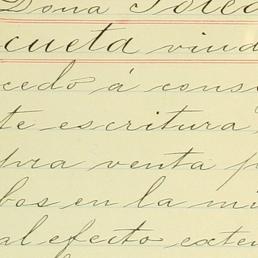 Doña Toled
cueta viud
cedo á cons
te escritura
pra venta p
bos en la mi
al efecto exten